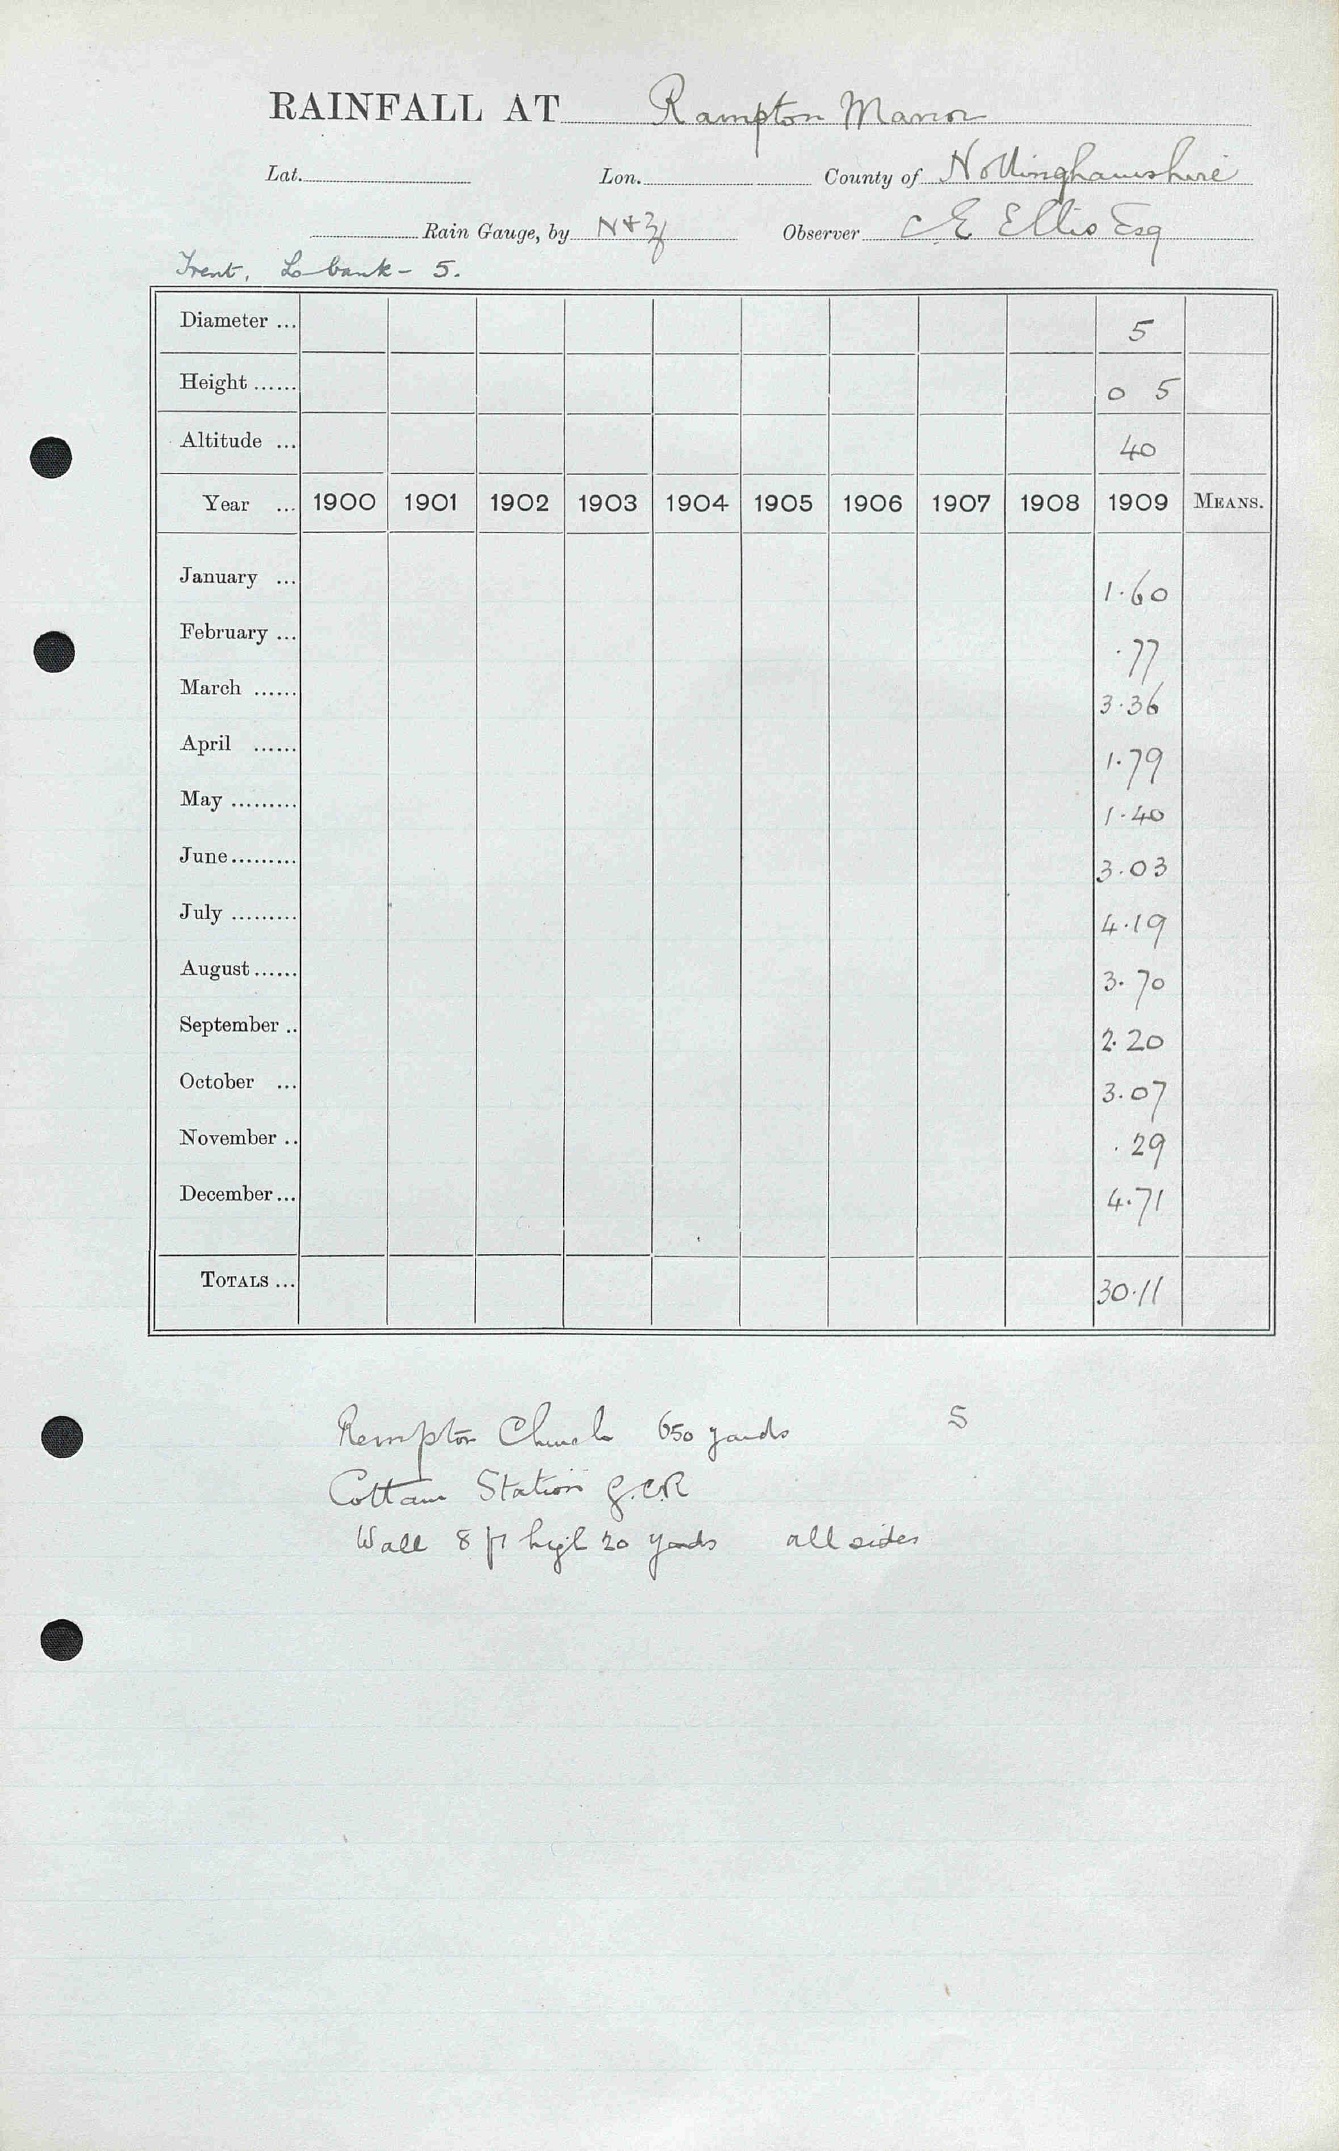 RAINFALL AT Rampton Manor
Lat. Lon. County of Nottinghamshire
Rain Gauge, by N & Z Observer C E Ellis Esq
Trent, L bank - 5.
Diameter ... 5
Height ...... 0 5
Altitude ... 40
Year ... 1900 1901 1902 1903 1904 1905 1906 1907 1908 1909 MEANS.
January ... 1.60
February ... .77
March ...... 3.36
April ...... 1.79
May ......... 1.40
June ......... 3.03
July ......... 4.19
August ...... 3.70
September .. 2.20
October ... 3.07
November .. .29
December ... 4.71
TOTALS ... 30.11
Rampton Church 650 yards S
Cottam Station G.C.R
Wall 8 ft high 20 yards all sides